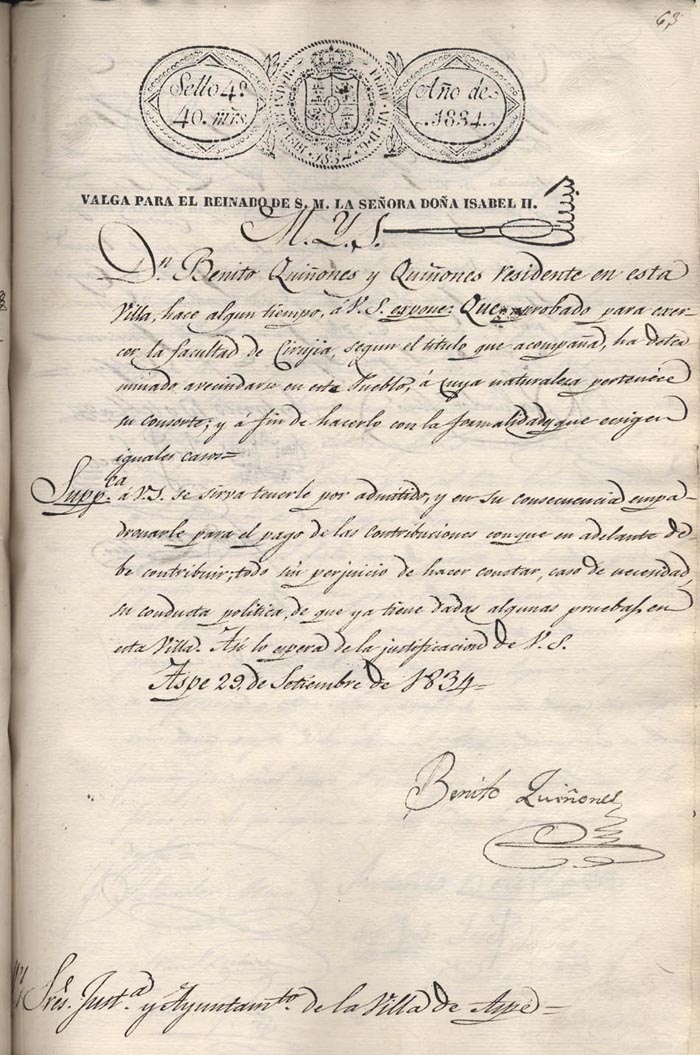 63
Sello 4º
40. mrs.
Año de
1834.
1834
VALGA PARA EL REINADO DE S. M. LA SEÑORA DOÑA ISABEL II.
M. Y. S.
Dn. Benito Quiñones y Quiñones residente en esta
Villa, hace algun tiempo, á V.S. espone: Que aprobado para exer-
cer la facultad de Cirujia, segun el titulo que acompaña, ha deter
minado avecindarse en este Pueblo, á cuya naturaleza pertenece
su consorte; y á fin de hacerlo con la formalidad que exigen
iguales casos=
Suppca. á V.S. se sirva tenerle por admitido, y en su consecuencia empa-
dronarle para el pago de las contribuciones con que en adelante de-
be contribuir; todo sin perjuicio de hacer constar, caso de necesidad,
su conducta politica, de que ya tiene dadas algunas pruebas en
esta Villa. Asi lo espera de la justificacion de V.S.
Aspe 29. de Setiembre de 1834=
Benito Quiñones
Sres. Justa. y Ayuntamto. de la Villa de Aspe=